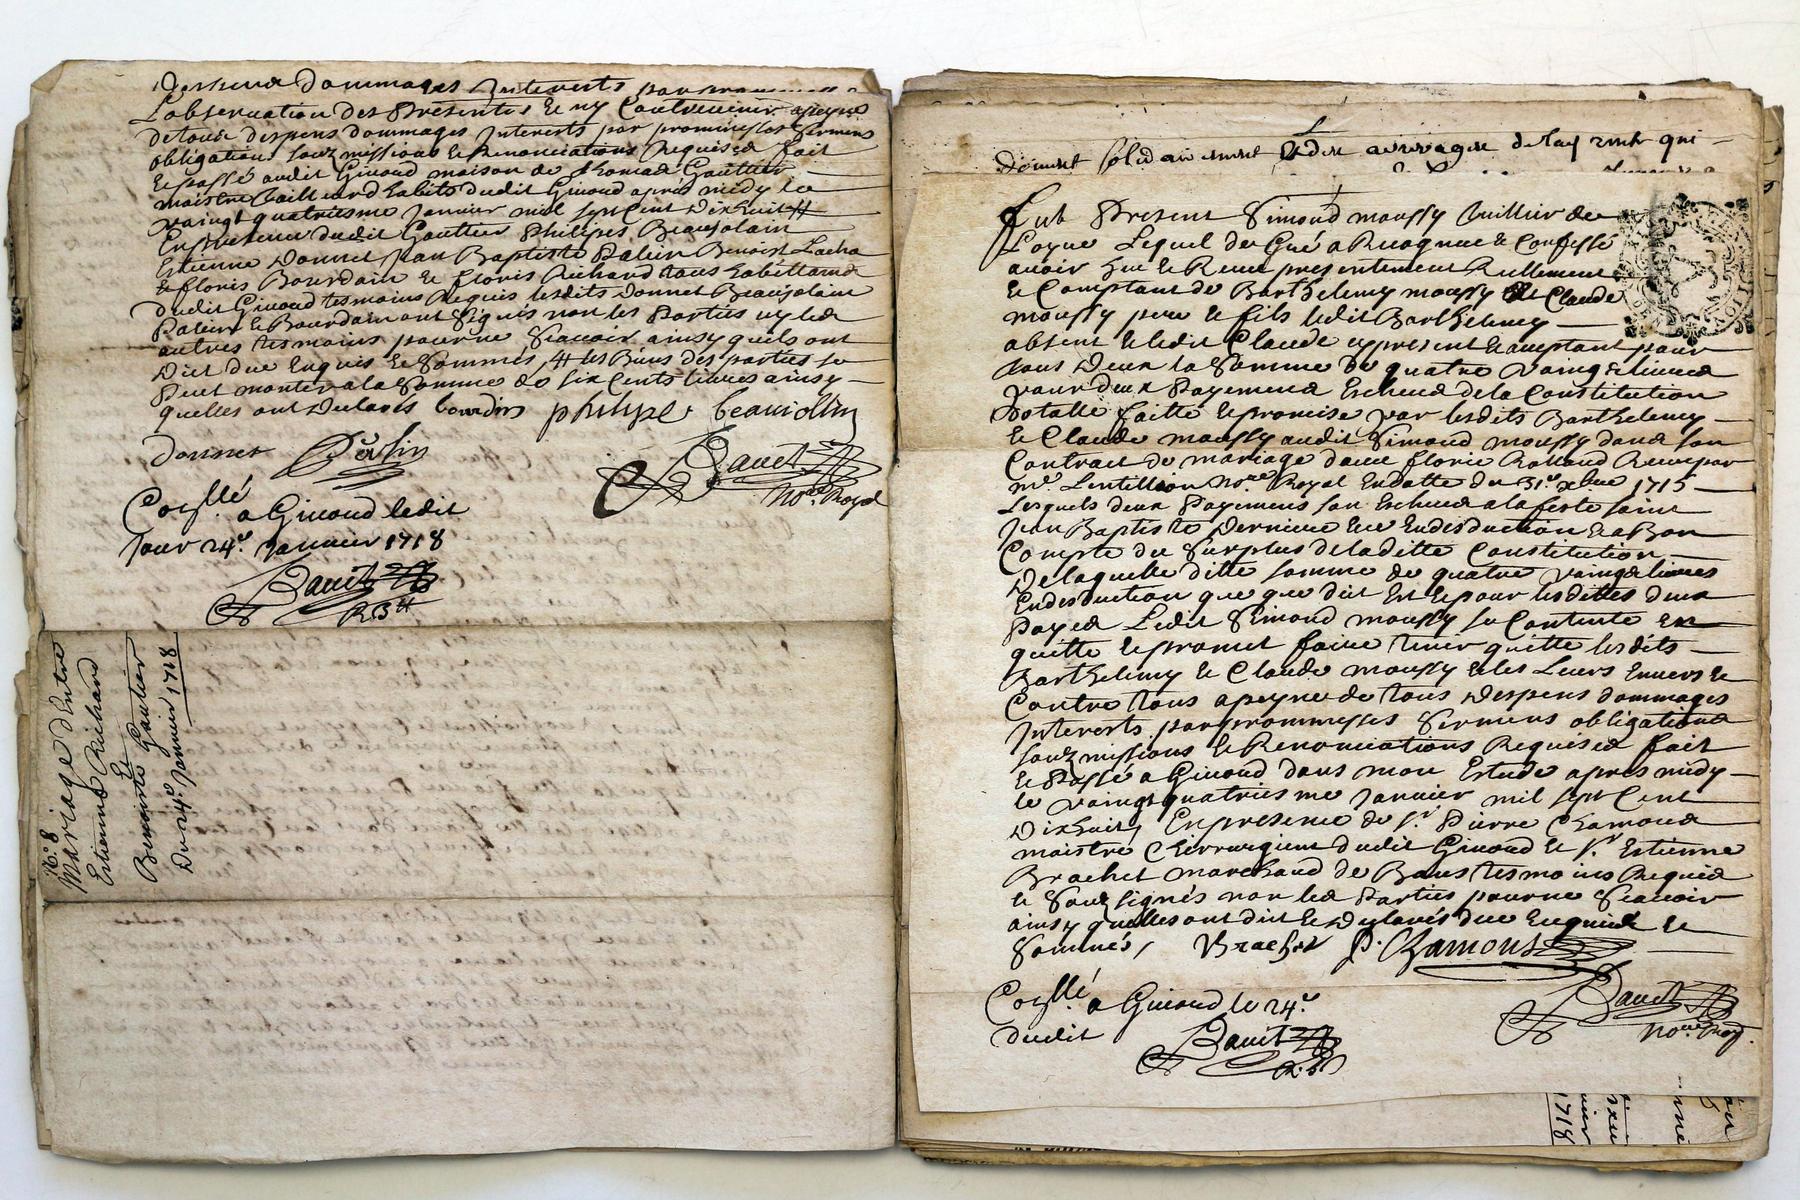 dommages Interests par
L'observation des presentes Et ny Contrevenir apeyne
detous despens dommages Interests par promesses sermens
obligations souzmissions Et Renonciations Requises fait
Et passé audit Givord maison de thomas Gautier
maistre dudit Givord apres midy le
vaingt quatriesme Janvier mil sept Cent dix huit #
En presence dudit Gautier philipes Beaujolain
Estienne donnet Jean Baptiste Benoist Lacha
Et floris Bourdain Et floris Richard tous habittans
dudit Givord tesmoins Requis lesdits donnet Beaujolain
Et Bourdain ont signés non les parties ny les
autres tesmoins pour ne scavoir ainsy quils ont
dict due Enquis Et sommés, # les Biens des parties se
peut monter a la somme de six Cents livres ainsy
quelles ont declarés bourdin philipe beaujollin
donnet
Bauet
No.re Royal
Co.llé a Givord ledit
Jour 24.e Janvier 1718
Bauet
No. 8
Mariage d'Entre
Estienne Richard
Et
Benoiste Gautier
Du 24.e Janvier 1718
doivent solidairement des arrerages de lad. rente qui
fut present Simond moussy de
Loyre Lequel de Gré a Recognue Et Confessé
avoir heu Et Receu presentement Reellement
Et Comptant de Barthelemy moussy Et Claude
moussy pere Et fils ledit Barthelemy
absent Et ledit Claude cy present Et acceptant pour
tous deux la somme de quatre vaingt livres
pour deux payemens Escheus de la Constitution
dotalle faitte Et promise par lesdits Barthelemy
Et Claude moussy audit Simond moussy dans son
Contract de mariage avec florie Rolland Receu par
m.e Lentillon No.re Royal En datte du 31.e xbre 1715
Lesquels deux payemens son Escheus a la feste saint
Jean Baptiste derniere Et ce En desduction Et a Bon
Compte du surplus de la ditte Constitution
de laquelle ditte somme de quatre vaingt livres
En desduction que que dict Est Et pour lesdittes deux
payes Ledit Simond moussy se Contente En
quitte Et promet faire tenir quitte lesdits
Barthelemy Et Claude moussy Et les Leurs Envers Et
Contre tous apeyne de tous despens dommages
Interests par prommesses sermens obligations
souzmissions Et Renonciations Requises fait
Et passé a Givord dans mon Estude apres midy
le vaingt quatriesme Janvier mil sept Cent
dix huit, En presence de s.r pierre Chamond
maistre Chirurgien dudit Givord Et s.r Estienne
Brachet marchand de Bans tesmoins Requis
Et souz signés non les parties pour ne scavoir
ainsy quelles ont dict Et declarés due Enquise Et
sommés, Brachet P. Chamons
Co.llé a Givord le 24.e
dudit
Bauet
No.re Roy.
Bauet
1718